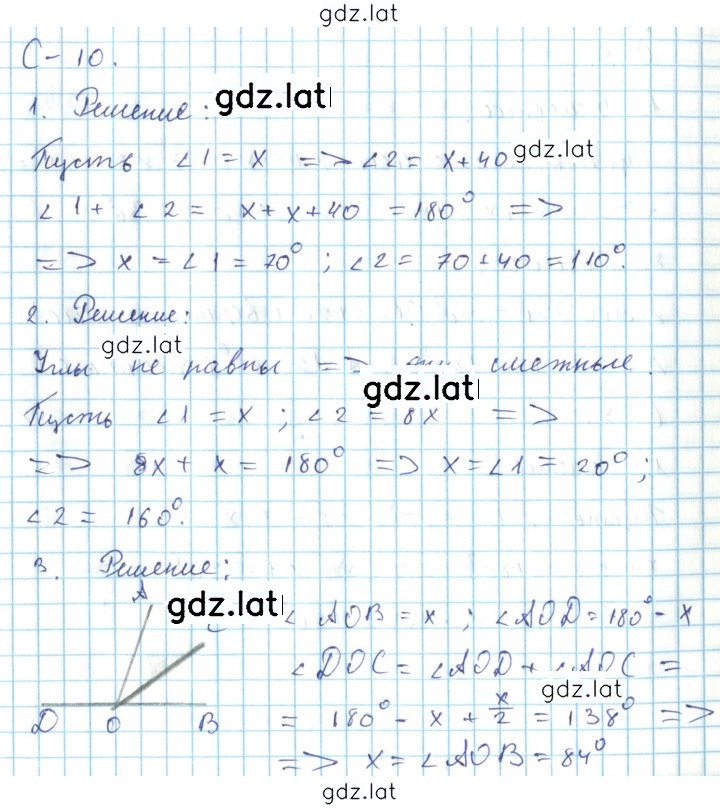 gdz.lat
С-10.
1. Решение: gdz.lat
Пусть ∠1 = x => ∠2 = x+40 gdz.lat
∠1 + ∠2 = x+x+40 = 180° =>
=> x = ∠1 = 70°; ∠2 = 70+40 = 110°.
2. Решение:
gdz.lat
Углы не равны => смежные.
gdz.lat
Пусть ∠1 = x; ∠2 = 8x =>
=> 8x + x = 180° => x = ∠1 = 20°;
∠2 = 160°.
3. Решение:
A
gdz.lat
∠AOB = x; ∠AOD = 180° - x
∠DOC = ∠AOD + ∠AOC =
gdz.lat
= 180° - x + x/2 = 138° =>
D O B
=> x = ∠AOB = 84°
gdz.lat